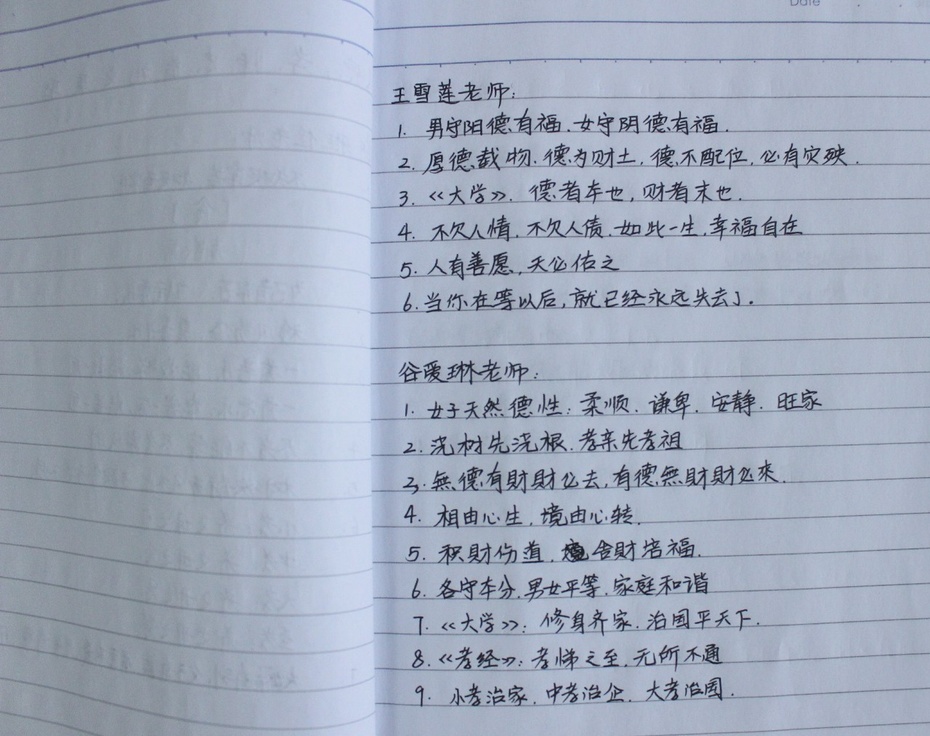 Date
王雪莲老师：
1. 男守阳德有福．女守阴德有福．
2. 厚德载物．德为财土，德不配位，必有灾殃．
3. 《大学》． 德者本也，财者末也．
4. 不欠人情．不欠人债．如此一生．幸福自在
5. 人有善愿，天必佑之
6. 当你在等以后，就已经永远失去了．
谷爱琳老师：
1. 女子天然德性：柔顺．谦卑．安静．旺家
2. 浇树先浇根．孝亲先孝祖
3. 無德有財財必去，有德無財財必來．
4. 相由心生．境由心转．
5. 积財伤道． 舍財培福．
6. 各守本分．男女平等．家庭和谐
7. 《大学》：修身齐家．治国平天下．
8. 《孝经》：孝悌之至．无所不通
9. 小孝治家．中孝治企．大孝治国．